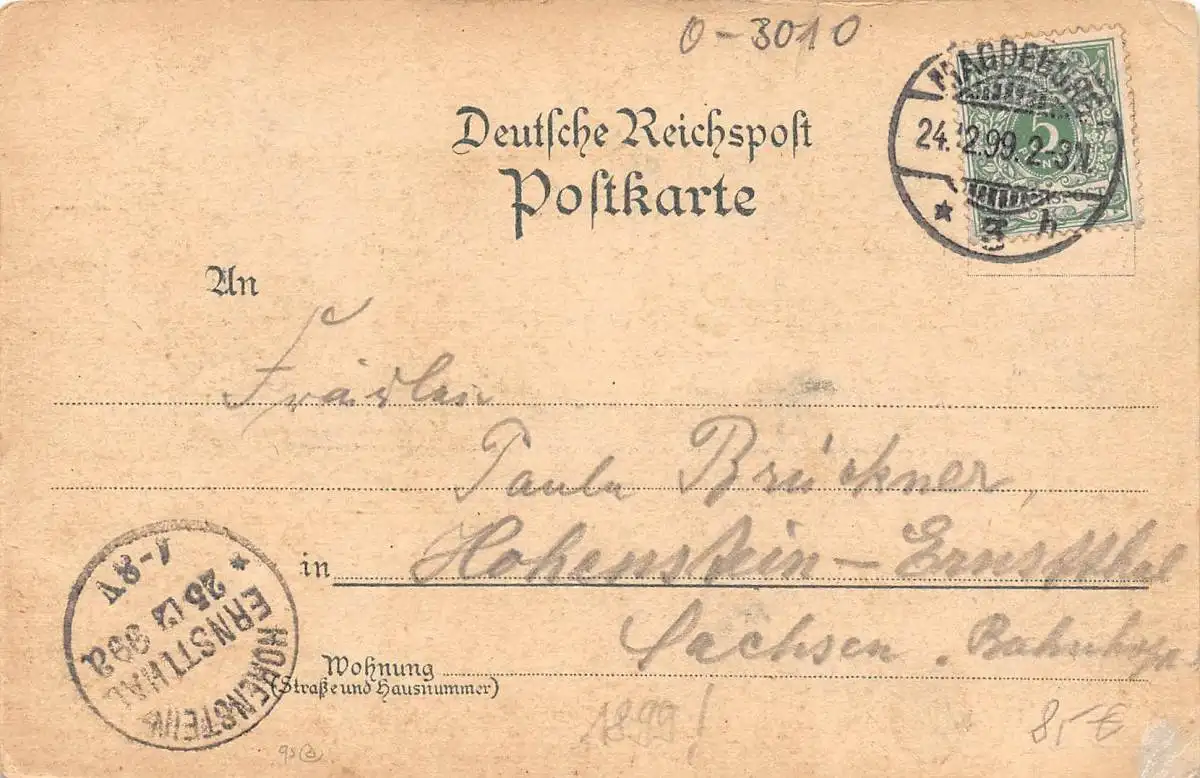 0-3010
MAGDEBURG
24.12.99.2-3N.
* g h
5
REICHSPOST
Deutsche Reichspost
Postkarte
An
Fräulein
Paula Brückner,
in Hohenstein-Ernstthal
Sachsen. Bahnhofstr.
Wohnung
(Straße und Hausnummer)
HOHENSTEIN *
ERNSTTHAL
25 12 99 a
1-8 V
1899!
85 €